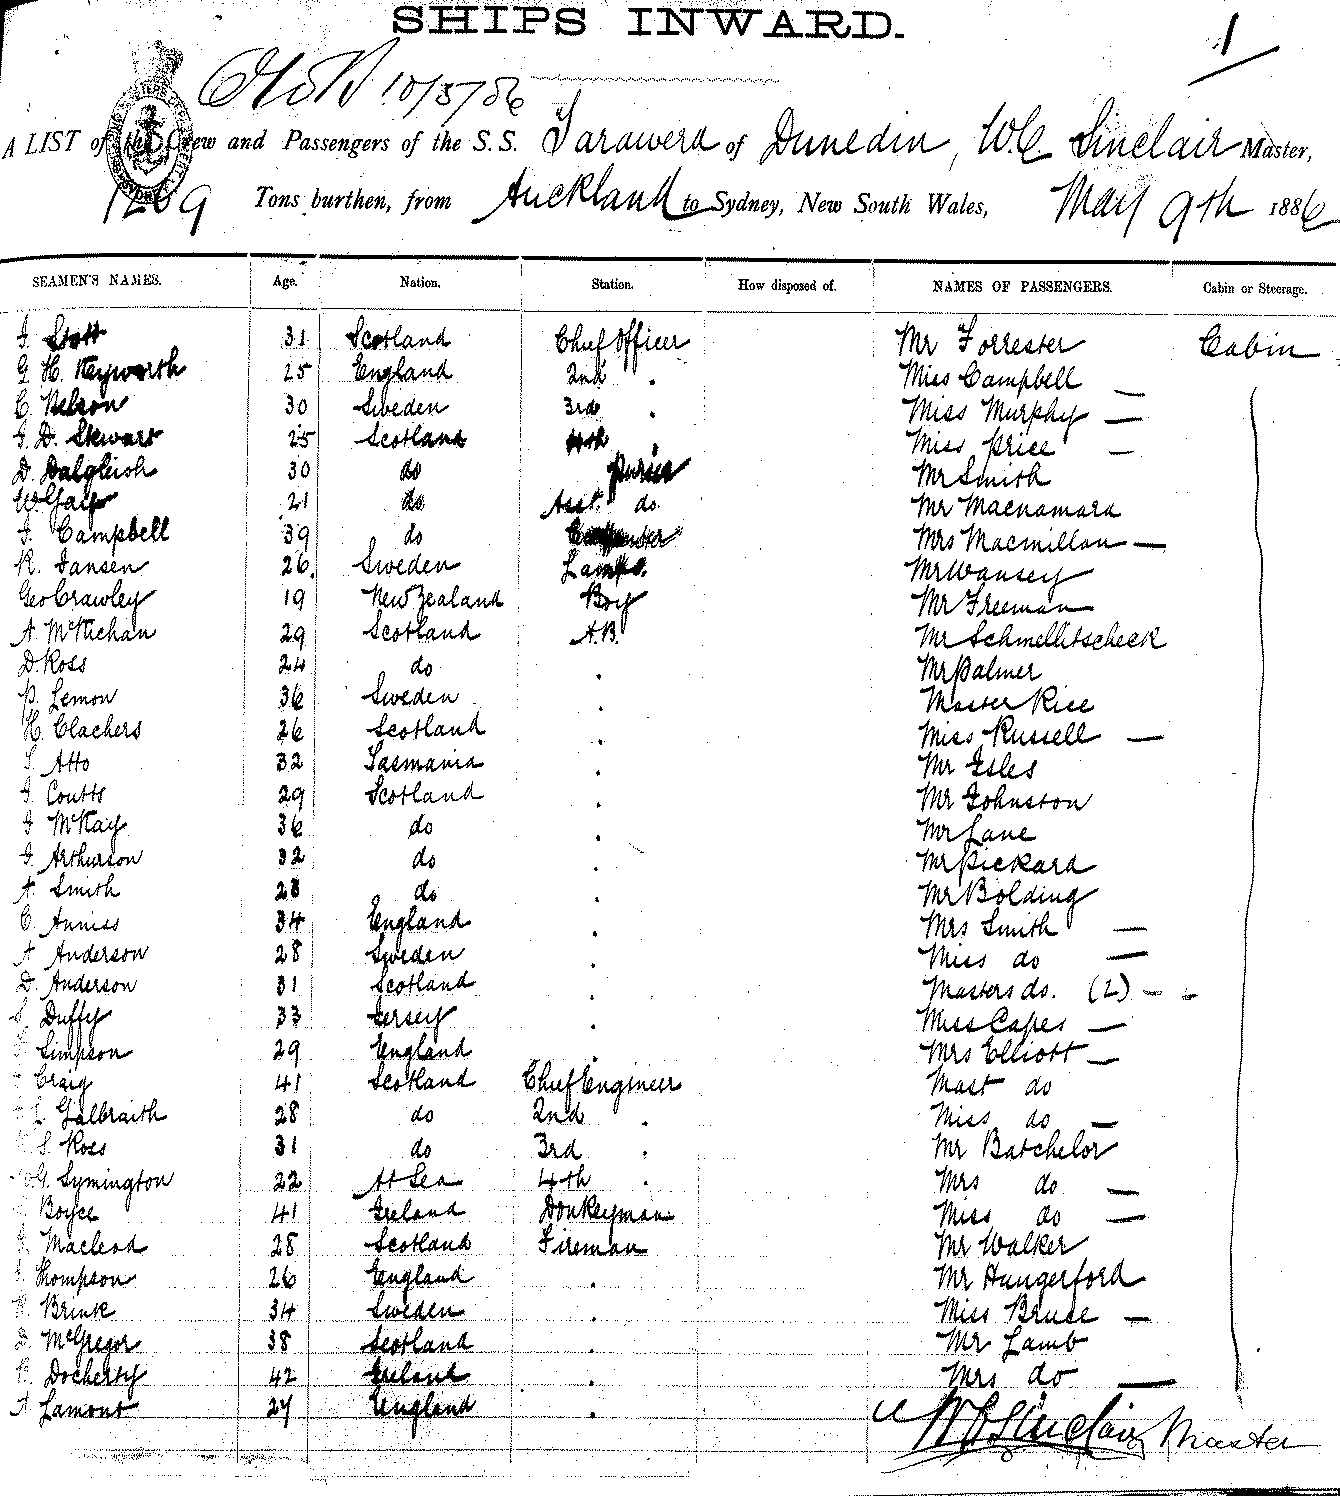 SHIPS INWARD.
1
10/5/86
A LIST of the Crew and Passengers of the S.S. Tarawera of Dunedin, W.C. Sinclair Master,
1269 Tons burthen, from Auckland to Sydney, New South Wales, May 9th 1886
SEAMEN'S NAMES. Age. Nation. Station. How disposed of. NAMES OF PASSENGERS. Cabin or Steerage.
J. Stott 31 Scotland Chief Officer Mr Forrester Cabin
G. H. Heyworth 25 England 2nd " Miss Campbell —
C. Nelson 30 Sweden 3rd " Miss Murphy —
J. D. Stewart 25 Scotland 4th Miss Price —
D. Dalgleish 30 do Purser Mr Smith
21 do Asst. do. Mr Macnamara
J. Campbell 39 do Carpenter Mrs Macmillan —
R. Jansen 26 Sweden Lamps. Mr Wansey
Geo Crawley 19 New Zealand Boy Mr Freeman
A. McKichan 29 Scotland A.B. Mr Schmellitscheck
D. Ross 24 do " Mr Palmer
P. Lemon 36 Sweden " Master Rice
H. Clachers 26 Scotland " Miss Russell —
S. Atto 32 Tasmania " Mr Isles
J. Coutts 29 Scotland " Mr Johnston
J. McKay 36 do " Mr Lane
J. Arthurson 32 do " Mr Pickard
A. Smith 28 do " Mr Bolding
C. Anniss 34 England " Mrs Smith —
A. Anderson 28 Sweden " Miss do —
D. Anderson 31 Scotland " Masters do. (2) - -
S. Duffy 33 Jersey " Miss Capes —
Simpson 29 England " Mrs Elliott —
Craig 41 Scotland Chief Engineer Mast do
Galbraith 28 do 2nd " Miss do —
S. Ross 31 do 3rd " Mr Batchelor
G. Symington 22 At Sea 4th " Mrs do —
Boyce 41 Ireland Donkeyman Miss do —
Macleod 28 Scotland Fireman Mr Walker
Thompson 26 England " Mr Hungerford
Brink 34 Sweden " Miss Bruse —
D. McGregor 38 Scotland " Mr Lamb
B. Docherty 42 Ireland " Mrs do —
A. Lamont 27 England "
W C Sinclair Master